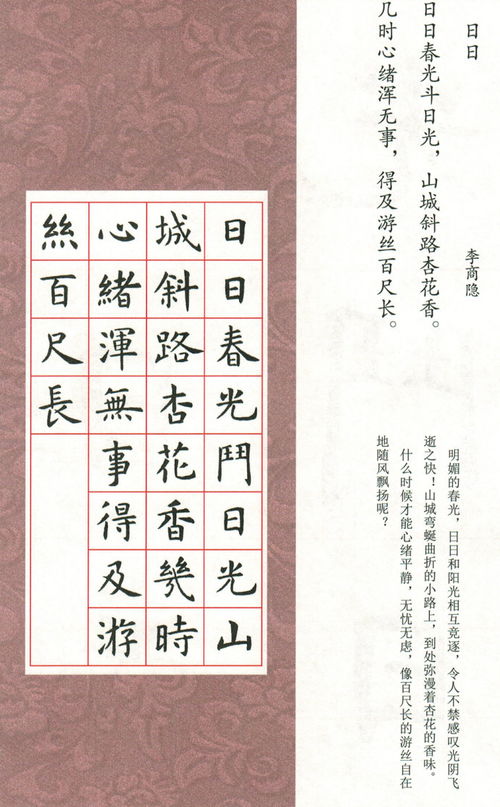 日日
李商隐
日日春光斗日光，山城斜路杏花香。
几时心绪浑无事，得及游丝百尺长。
明媚的春光，日日和阳光相互竞逐，令人不禁感叹光阴飞
逝之快！山城弯蜒曲折的小路上，到处弥漫着杏花的香味。
什么时候才能心绪平静，无忧无虑，像百尺长的游丝自在
地随风飘扬呢？
日日春光鬥日光山
城斜路杏花香幾時
心緒渾無事得及游
絲百尺長